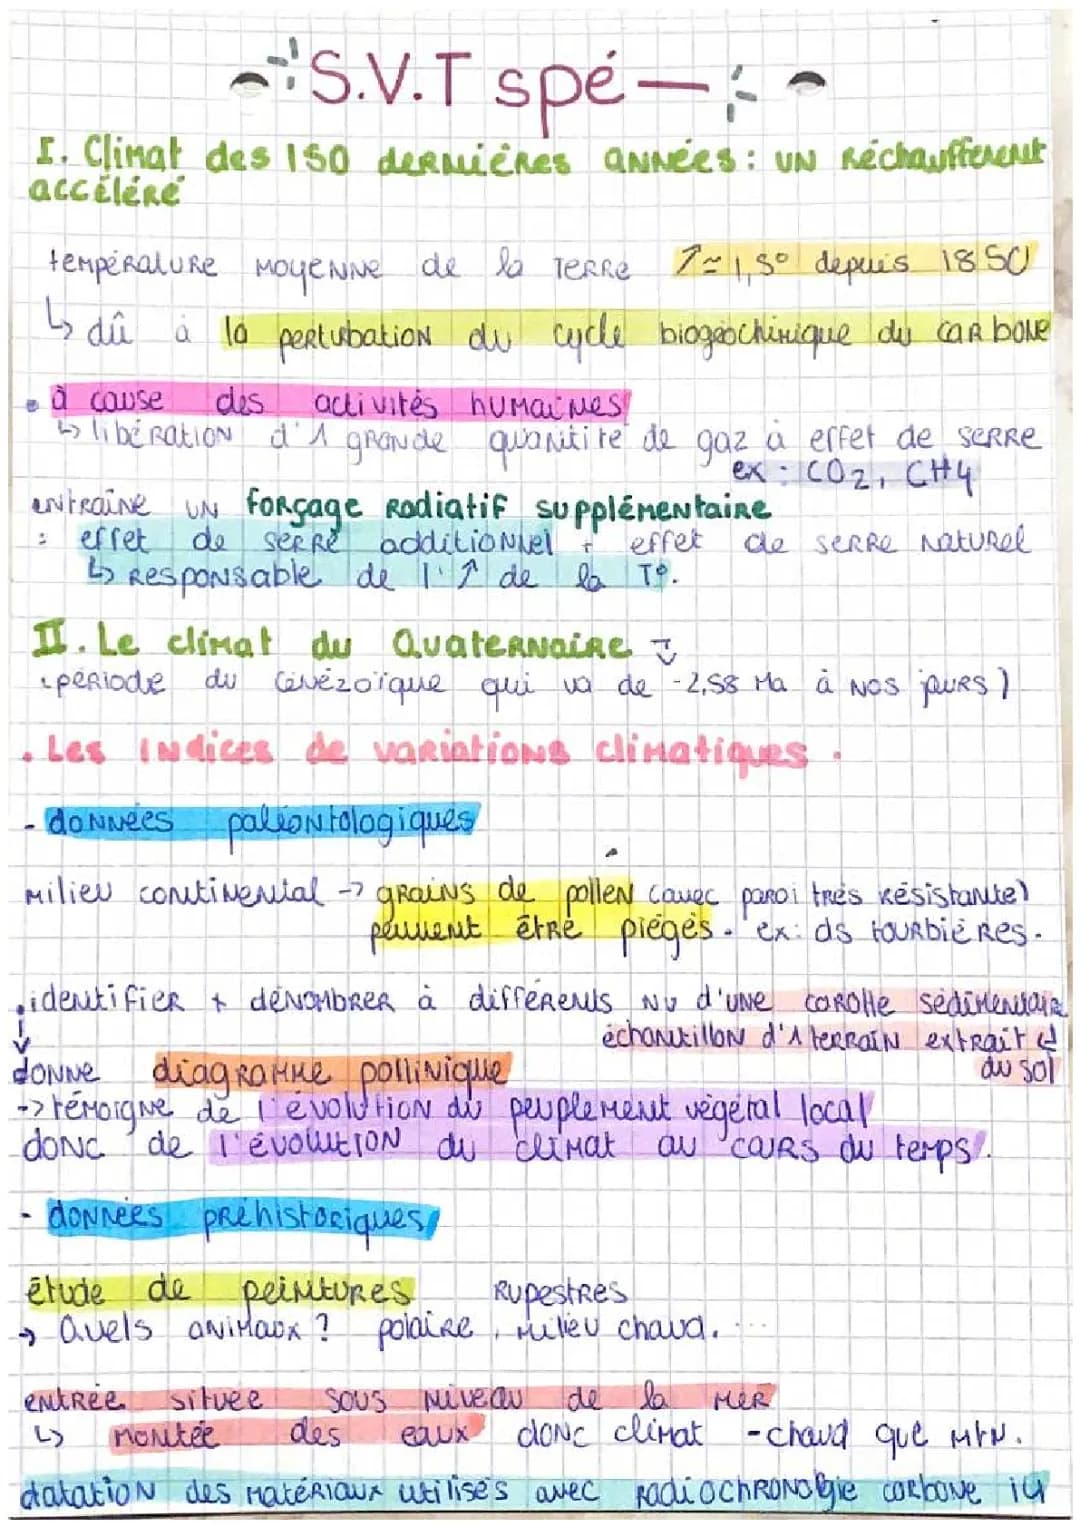 S.V.T spé
I. Climat des 150 dernières années : un réchauffement
accéléré
température moyenne de la Terre ↑≃ 1,5° depuis 1850
↳ dû à la pertubation du cycle biogéochimique du carbone
• à cause des activités humaines
↳ libération d'1 grande quantité de gaz à effet de serre
ex : CO2, CH4
entraîne un forçage radiatif supplémentaire
: effet de serre additionnel + effet de serre naturel
↳ responsable de l'↑ de la T°.
II. Le climat du Quaternaire
(période du Cénézoïque qui va de -2,58 Ma à nos jours)
• Les indices de variations climatiques •
- données paléontologiques
milieu continental -> grains de pollen (avec paroi très résistante)
peuvent être piégés. ex: ds tourbières.
• identifier + dénombrer à différents nv d'une carotte sédimentaire
échantillon d'1 terrain extrait
du sol
donne diagramme pollinique
-> témoigne de l'évolution du peuplement végétal local
donc de l'évolution du climat au cours du temps.
- données préhistoriques
étude de peintures rupestres
→ Quels animaux ? polaire, milieu chaud...
entrée située sous niveau de la mer
↳ montée des eaux donc climat - chaud que mtn.
datation des matériaux utilisés avec radiochronologie carbone 14